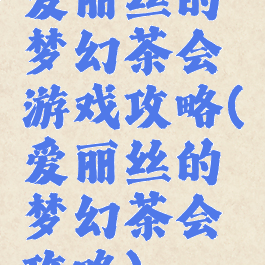 爱丽丝的
梦幻茶会
游戏攻略(
爱丽丝的
梦幻茶会
攻略)